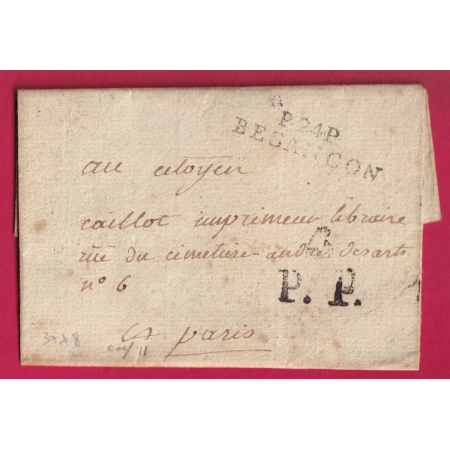 P24P
BESANÇON
au citoyen
caillot imprimeur libraire
rue du cimetiere andré des arts
n° 6
P. P.
a paris